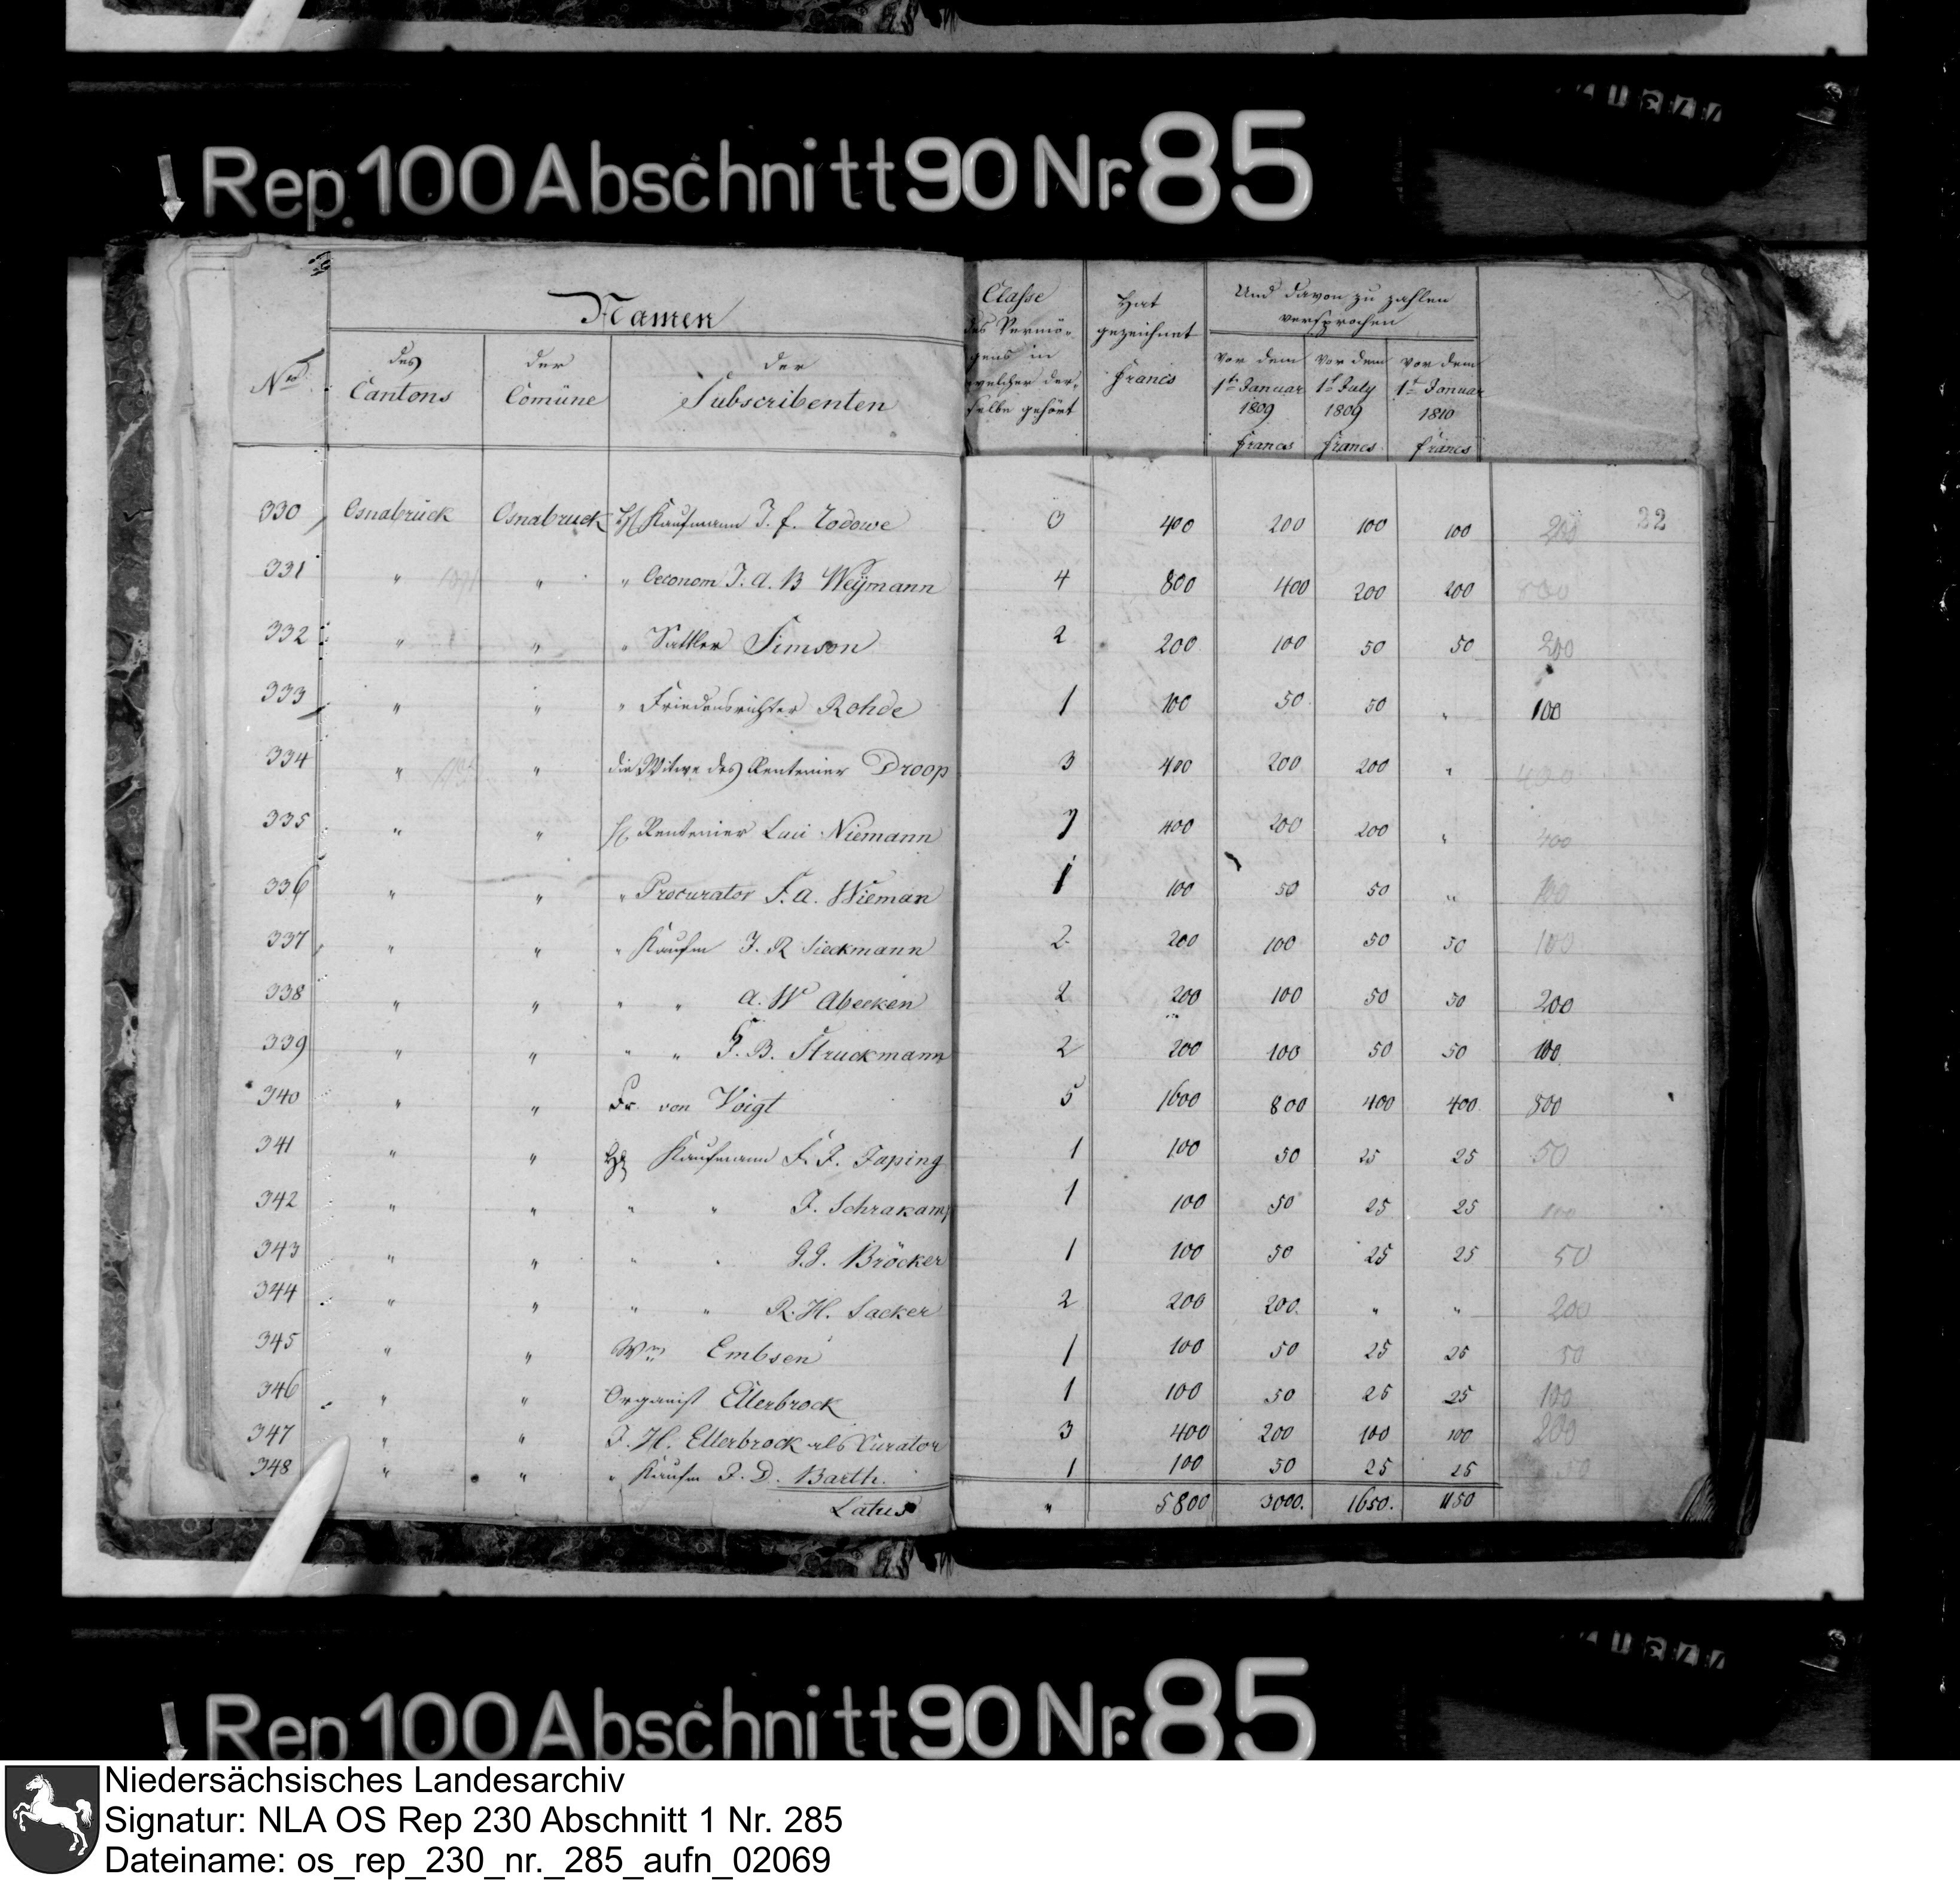 Rep. 100 Abschnitt 90 Nr. 85
Namen
Nro. des Cantons der Comüne der Subscribenten
Classe des Vermögens in welcher derselbe gehört
Hat gezeichnet Francs
Und davon zu zahlen versprochen
vor dem 1t Januar 1809 Francs
vor dem 1t July 1809 Francs
vor dem 1t Januar 1810 Francs
22
330 Osnabrück Osnabruck H Kaufmann J. f. Rodowe 3 400 200 100 100 200
331 " " " Oeconom J. A. B Weÿmann 4 800 400 200 200
332 " " " Sattler Simson 2 200 100 50 50 200
333 " " " Friedensrichter Rohde 1 100 50 50 " 100
334 " " die Witwe des Rentenier Droop 3 400 200 200 " 400
335 " " H. Rentenier Niemann 400 200 200 " 400
336 " " " Procurator F. A. Wieman 1 100 50 50 " 100
337 " " " Kaufm J. R Sieckmann 2 200 100 50 50 100
338 " " " " A. W Abecken 2 200 100 50 50 200
339 " " " " F. B. Struckmann 2 200 100 50 50 100
340 " " Fr. von Voigt 5 1600 800 400 400 800
341 " " H Kaufmann F. J. Japing 1 100 50 25 25 50
342 " " " " J. Schrakamp 1 100 50 25 25 100
343 " " " " G. G. Bröcker 1 100 50 25 25 50
344 " " " " R. H. Sacker 2 200 200. " " 200
345 " " Ww Embsen 1 100 50 25 25 50
346 " " Organist Ellerbrock 1 100 50 25 25 100
347 " " J. H. Ellerbrock als Curator 3 400 200 100 100 200
348 " " " Kaufm J. D. Barth. 1 100 50 25 25 50
Latus " 5800 3000. 1650. 1150
Rep 100 Abschnitt 90 Nr. 85
Niedersächsisches Landesarchiv
Signatur: NLA OS Rep 230 Abschnitt 1 Nr. 285
Dateiname: os_rep_230_nr._285_aufn_02069